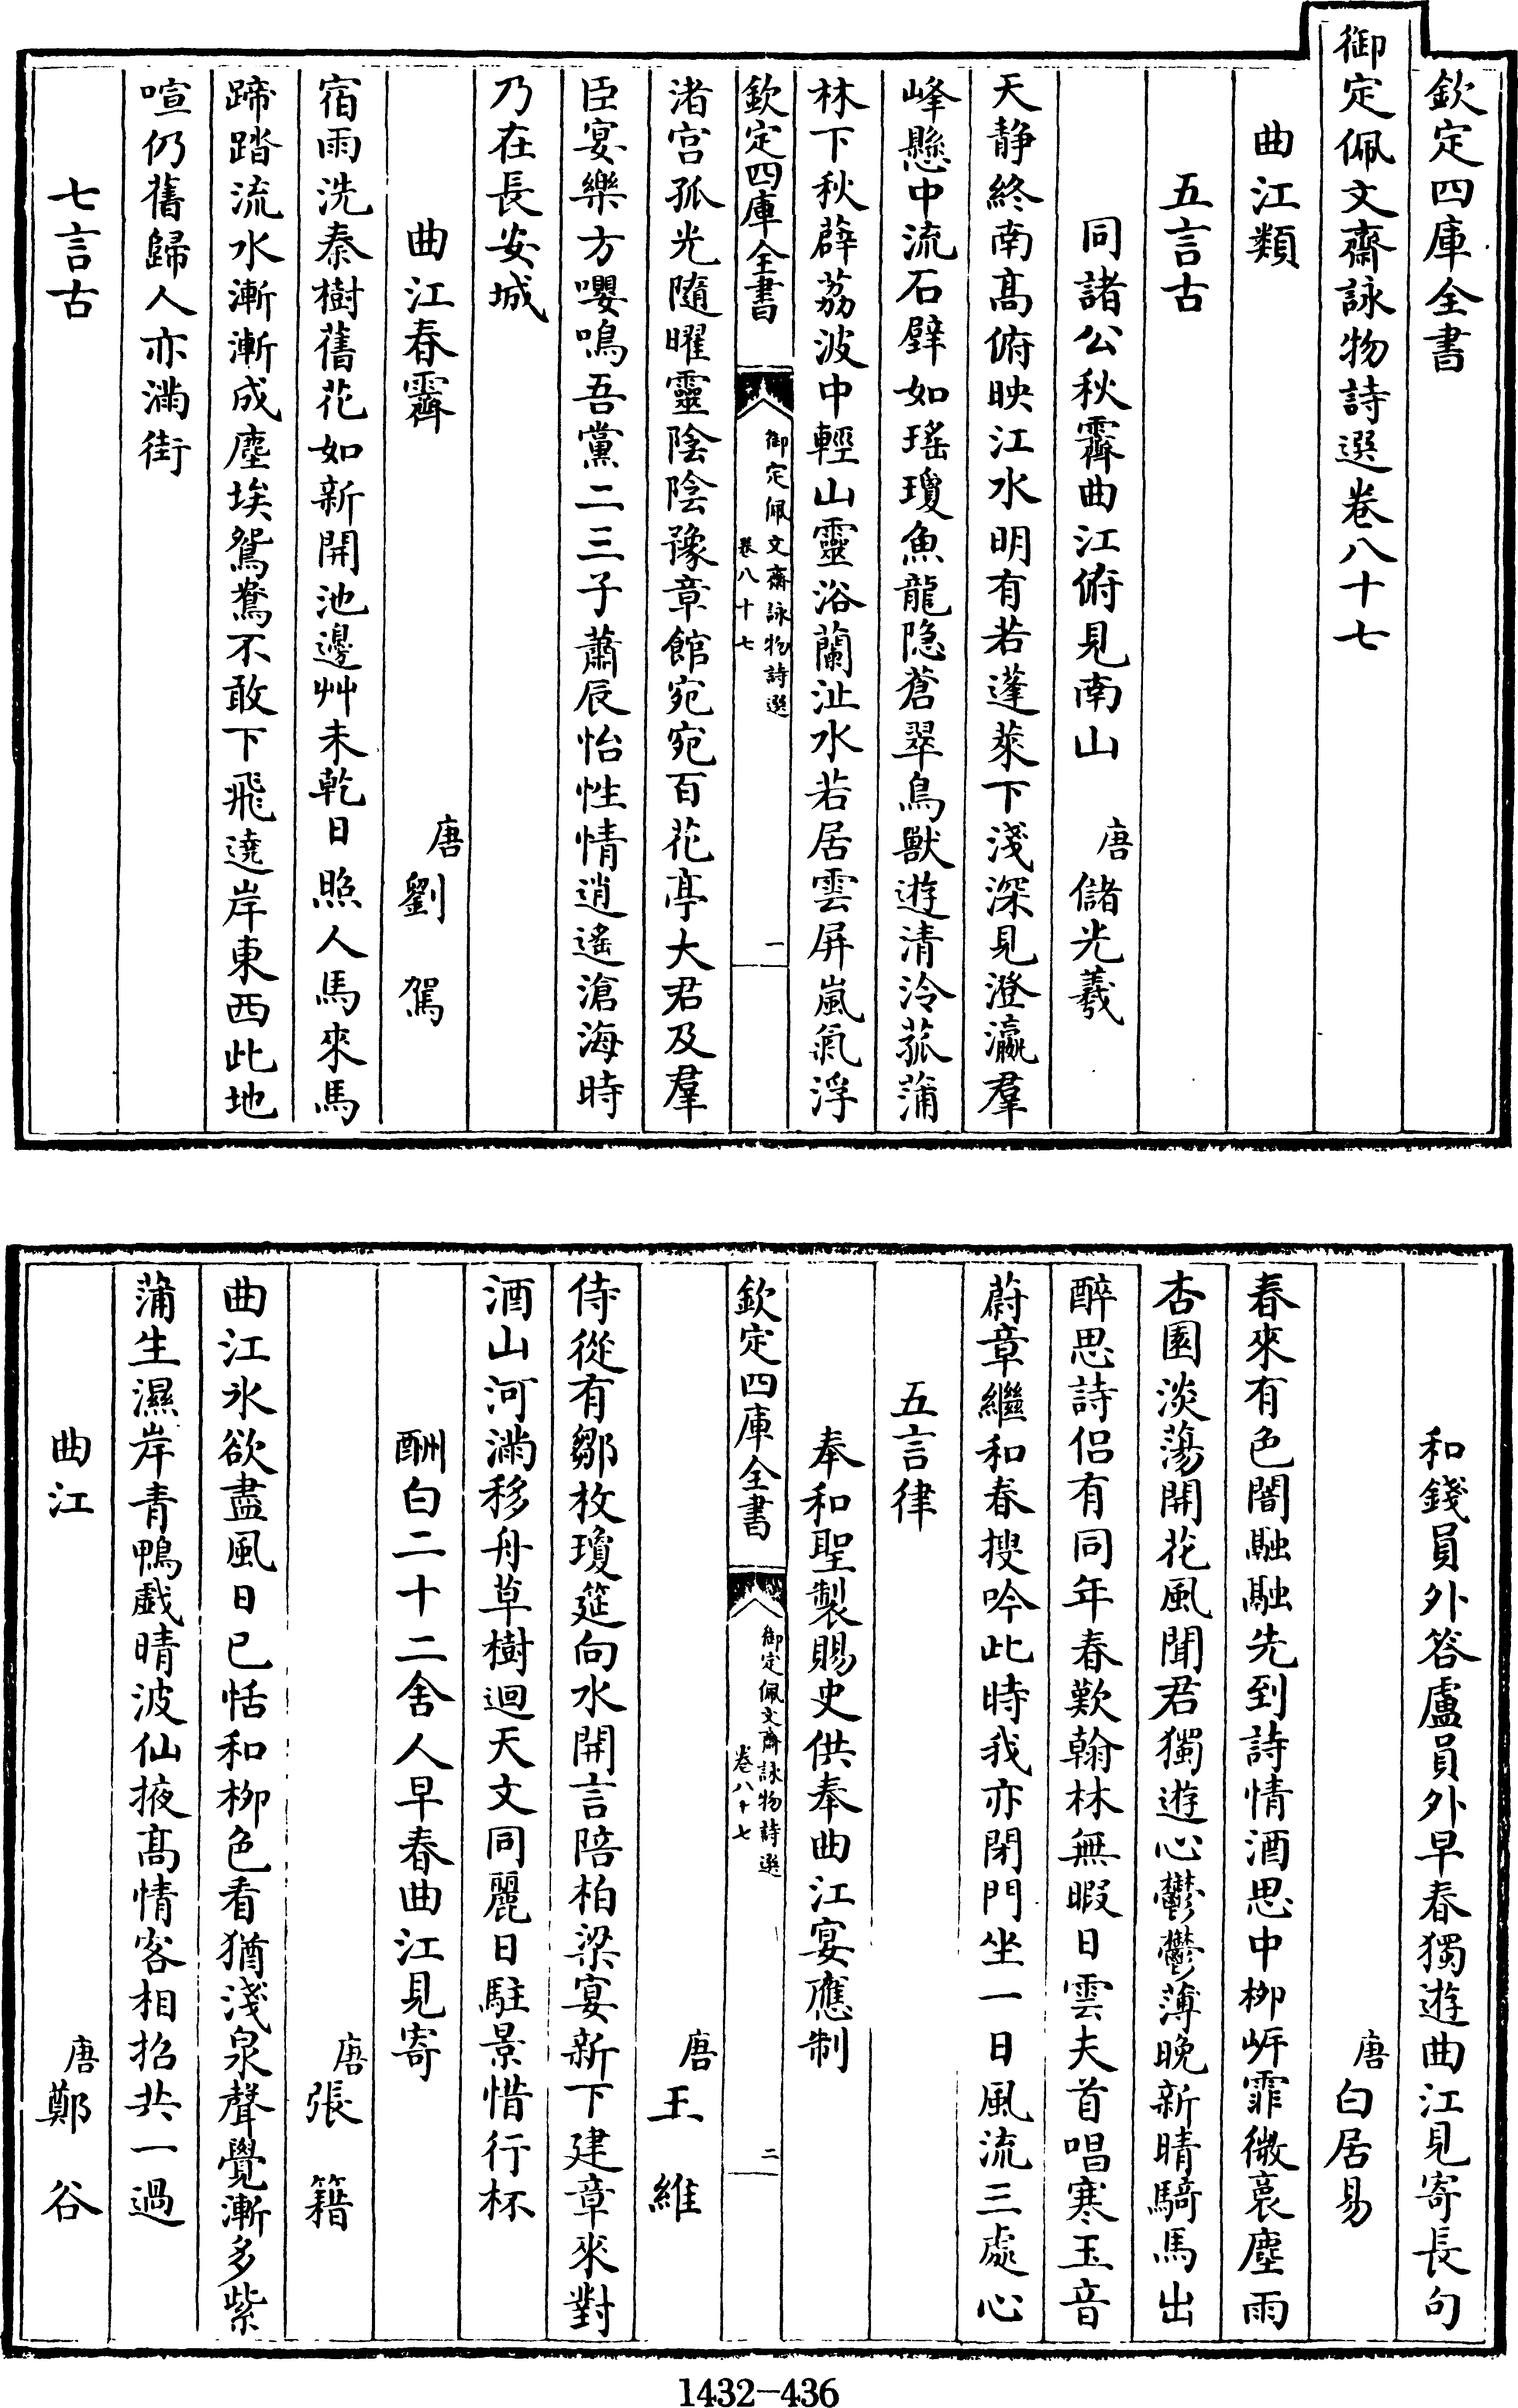 欽定四庫全書
御定佩文齋詠物詩選卷八十七
曲江類
五言古
同諸公秋霽曲江俯見南山　唐儲光羲
天静終南高俯映江水明有若蓬萊下淺深見澄瀛羣
峰懸中流石壁如瑤瓊魚龍隐蒼翠鳥獸遊清泠菰蒲
林下秋薜荔波中輕山靈浴蘭沚水若居雲屏嵐氣浮
欽定四庫全書　御定佩文齋詠物詩選 卷八十七　一
渚宫孤光隨曜靈陰陰豫章館宛宛百花亭大君及羣
臣宴樂方嚶鳴吾黨二三子蕭辰怡性情逍遙滄海時
乃在長安城
曲江春霽　唐劉駕
宿雨洗秦樹舊花如新開池邊艸未乾日照人馬來馬
蹄踏流水漸漸成塵埃鴛鴦不敢下飛遶岸東西此地
喧仍舊歸人亦滿街
七言古
和錢員外答盧員外早春獨遊曲江見寄長句
唐白居易
春來有色闇融融先到詩情酒思中柳岍霏微裛塵雨
杏園淡蕩開花風聞君獨遊心鬱鬱薄晚新晴騎馬出
醉思詩侶有同年春歎翰林無暇日雲夫首唱寒玉音
蔚章繼和春搜吟此時我亦閉門坐一日風流三處心
五言律
奉和聖製賜史供奉曲江宴應制
欽定四庫全書　御定佩文齋詠物詩選 卷八十七　二
唐王維
侍從有鄒枚瓊筵向水開言陪柏梁宴新下建章來對
酒山河滿移舟草樹迴天文同麗日駐景惜行杯
酬白二十二舍人早春曲江見寄
唐張籍
曲江氷欲盡風日已恬和柳色看猶淺泉聲覺漸多紫
蒲生濕岸青鴨戲晴波仙掖高情客相招共一過
曲江　唐鄭谷
1432-436